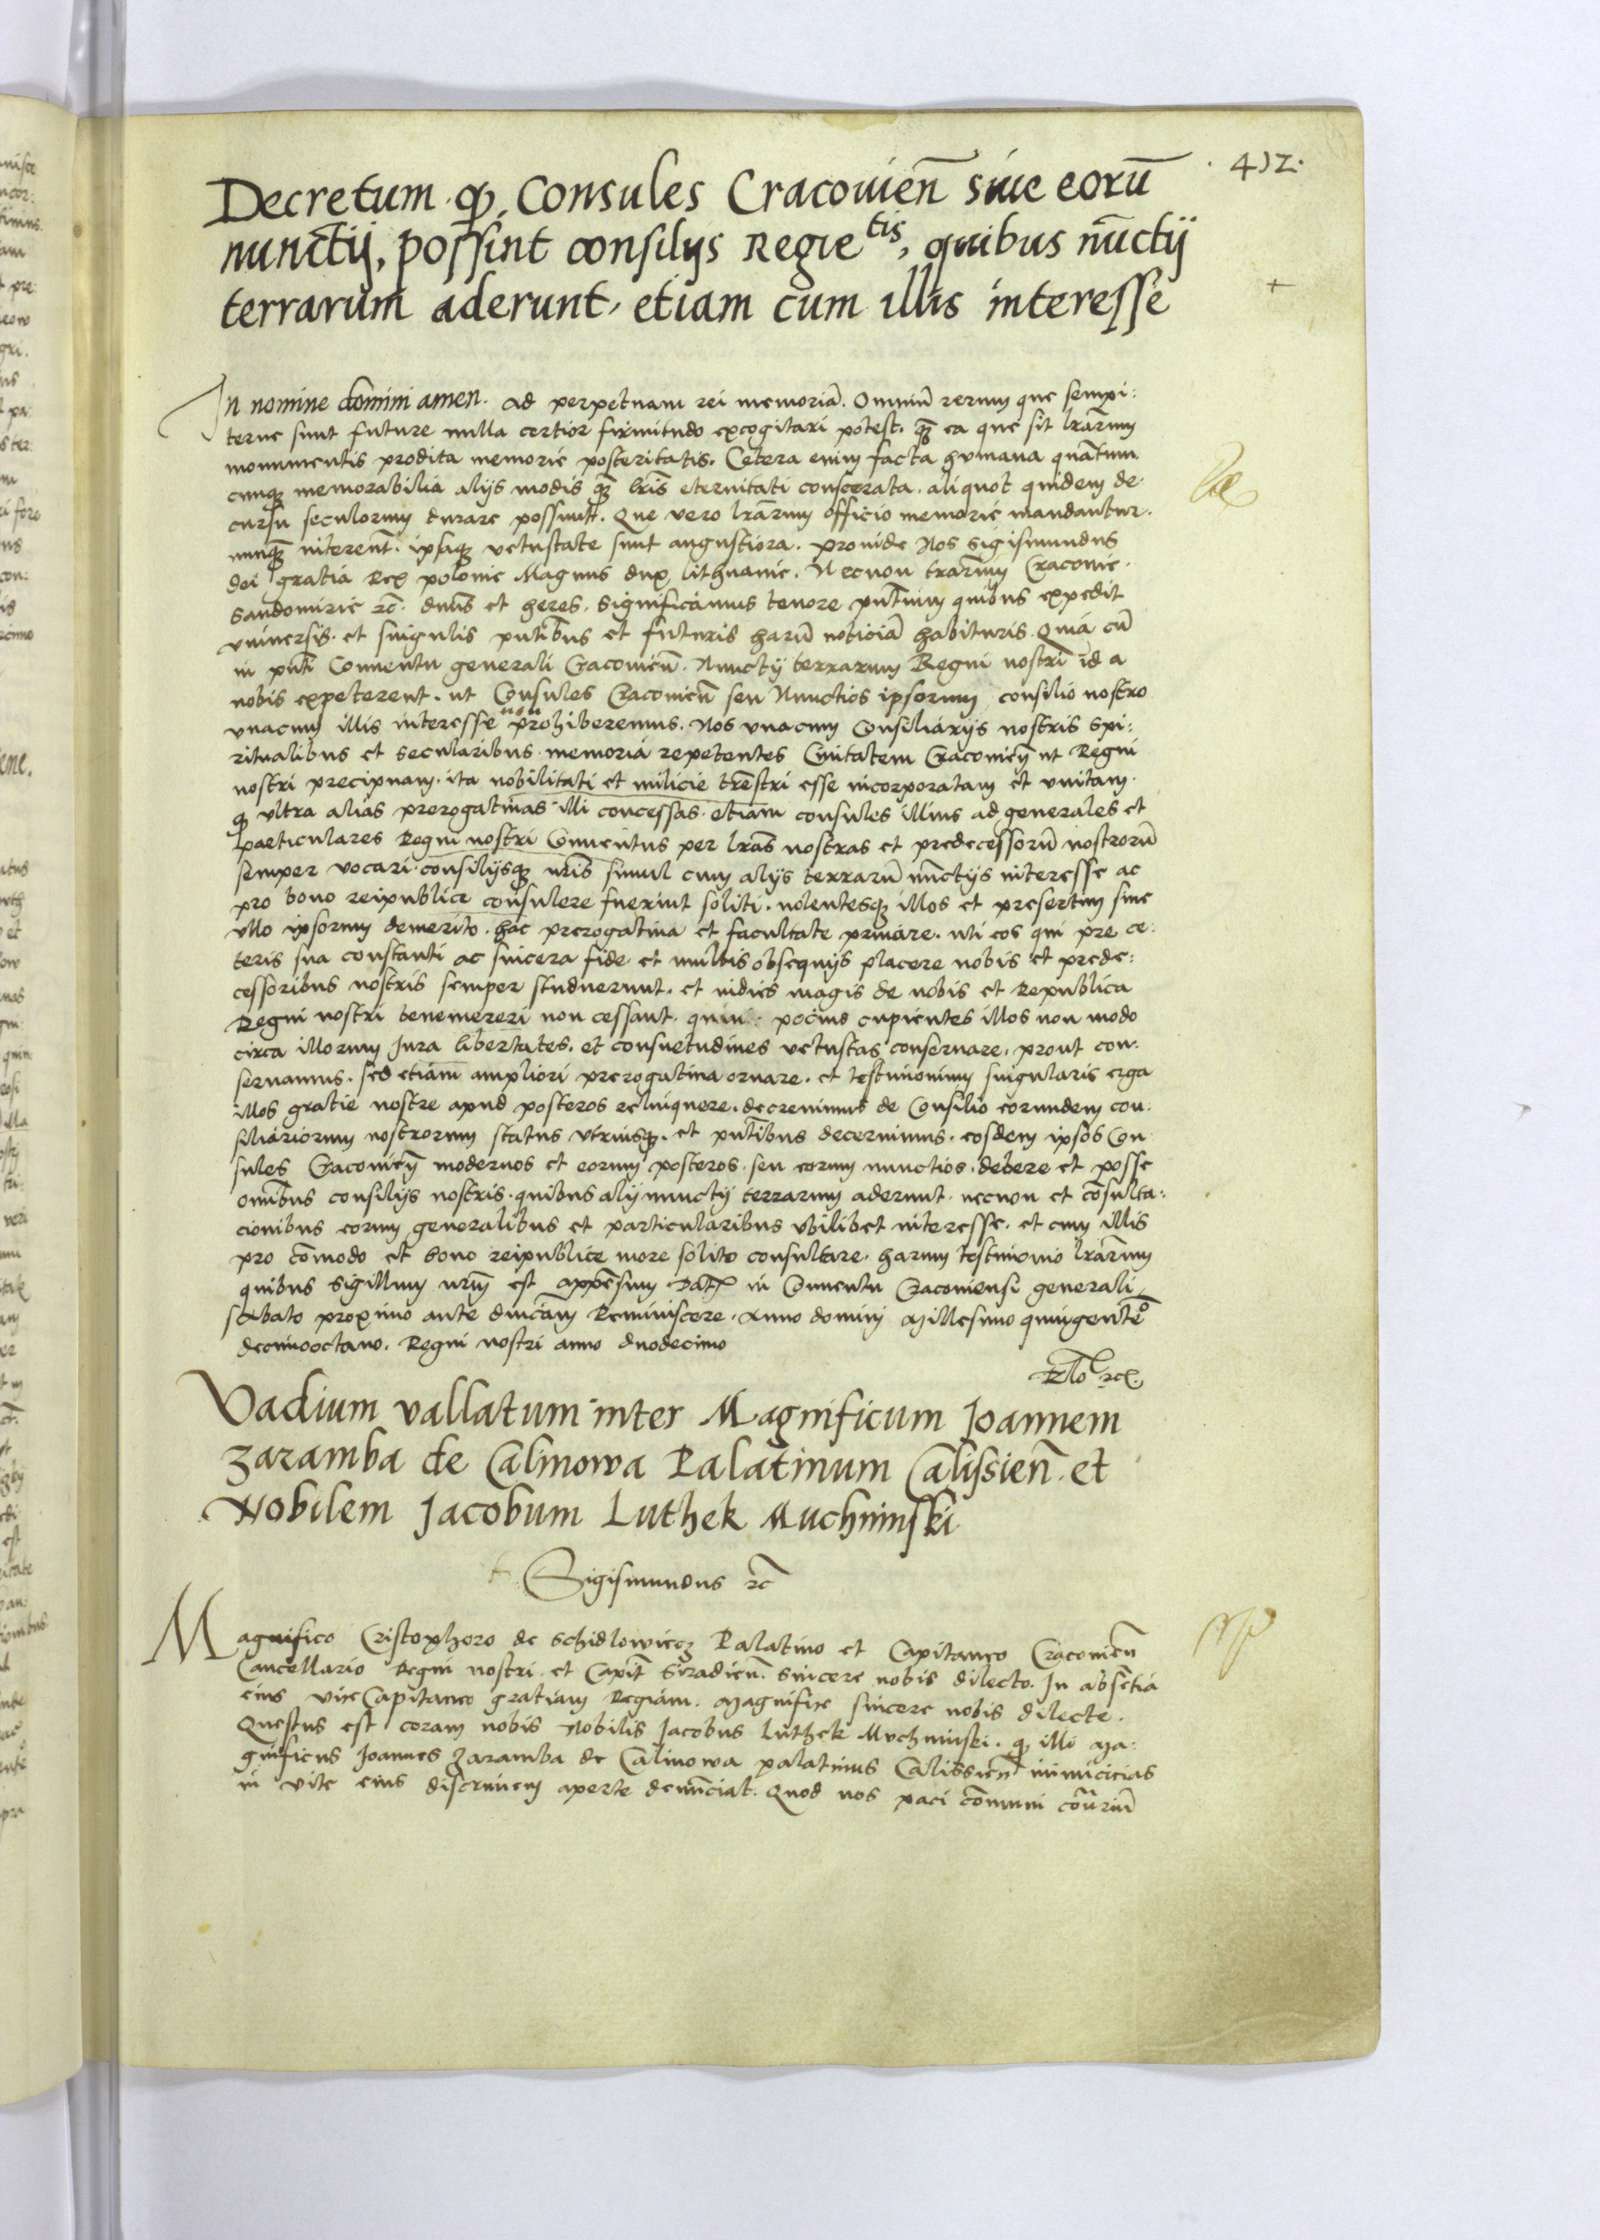 . 412 .
Decretum qꝫ Consules Cracovien̄ sive eorū
nunctij, possint consilijs Regie tis, quibus nūctij
terrarum aderunt, etiam cum illis interesse
In nomine domini amen. Ad perpetuam rei memoriā. Omniū rerum que sempi:
terne sunt future nulla certior firmitudo excogitari potest. qꝫ ea que sit lrārum
monumentis prodita memorie posteritatis. Cetera enim facta humana quātum
cunqꝫ memorabilia alijs modis qꝫ lris eternitati consecrata. aliquot quidem de
cursu seculorum durare possunt. Que vero lrārum officio memorie mandantur.
nunqꝫ intereūt. ipsaqꝫ vetustate sunt angustiora. Proinde Nos Sigismundus
dei gratia Rex polonie Magnus dux lithuanie. Necnon trārum Cracovie.
Sandomirie ꝛc. dnūs et heres. Significamus tenore pn̄tium quibus expedit
vniversis. et singulis pn̄tibus et futuris harū noticiā habituris. Quia cū
in pn̄ti Conventu generali Cracovien̄. Nunctij terrarum Regni nostri id a
nobis expeterent. ut Consules Cracovien̄ seu Nunctios ipsorum consilio nostro
vnacum illis interesse non prohiberemus. Nos vnacum Consiliarijs nostris spi:
ritualibus et secularibus memoria repetentes Civitatem Cracovien̄ ut Regni
nostri precipuam. ita nobilitati et milicie trēstri esse incorporatam et unitam.
qꝫ vltra alias prerogativas illi concessas. etiam consules illius ad generales et
particulares Regni nostri Conventus per lrās nostras et predecessorū nostrorū
semper vocari. consilijsqꝫ nr̄is simul cum alijs terrarū nūctijs interesse ac
pro bono reipublice consulere fuerint soliti. nolentesqꝫ illos et presertim sine
vllo ipsorum demerito. hac prerogativa et facultate privare. uti eos qui pre ce:
teris sua constanti ac sincera fide et multis obsequijs placere nobis et prede:
cessoribus nostris semper studuerunt. et indies magis de nobis et Republica
Regni nostri benemereri non cessant. pocius cupientes illos non modo
circa illorum Jura libertates. et consuetudines vetustas conservare. prout con.
servamus. sed etiam ampliori prerogativa ornare. et testimonium singularis erga
illos gratie nostre apud posteros relinquere. decrevimus de Consilio eorundem con:
siliariorum nostrorum status utriusqꝫ. et pn̄tibus decernimus. eosdem ipsos Con
sules Cracovien̄ modernos et eorum posteros. seu eorum nunctios. debere et posse
omībus consilijs nostris. quibus alij nunctij terrarum aderunt. necnon et cōsulta:
cionibus eorum generalibus et particularibus ubilibet interesse. et cum illis
pro cōmodo et bono reipublice more solito consultare. harum testimonio lrārum
quibus Sigillum nrm̄ est appēsum Dat in Conventu Cracoviensi generali,
sabbato proximo ante dn̄icam Reminiscere. Anno domini Millesimo quingentēo
decimooctavo. Regni nostri anno duodecimo
Vadium vallatum inter Magnificum Joannem
Zaramba de Calinowa Palatinum Calijsien̄ et
Nobilem Jacobum Luthek Muchninski
Sigismundus ꝛc
Magnifico Cristophoro de Schidlowiecz Palatino et Capitaneo Cracovien̄
Cancellario Regni nostri. et Capit̄ Siradien̄. sincere nobis dilecto. In absētia
eius vice Capitaneo gratiam Regiam. Magnifice sincere nobis dilecte.
Questus est coram nobis Nobilis Jacobus Luthek Muchninski. qꝫ illi Ma:
gnificus Joannes Zaramba de Calinowa palatinus Calissien̄ inimicicias
in vite eius discrimen aperte denūciat. Quod nos paci cōmuni cōtrariū